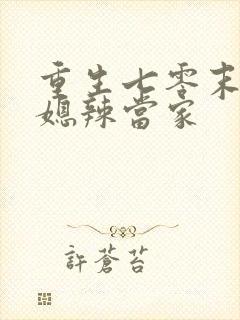 重生七零末
媳辣當家
許蒼苔